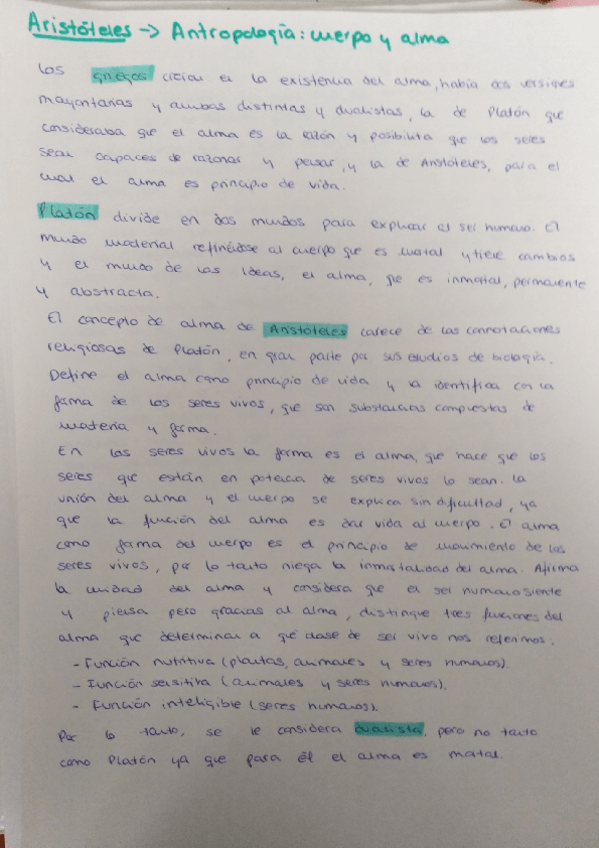 Aristóteles -> Antropología: cuerpo y alma
Los griegos creían en la existencia del alma, había dos versiones
mayoritarias y ambas distintas y dualistas, la de Platón que
consideraba que el alma es la razón y posibilita que los seres
sean capaces de razonar y pensar, y la de Aristóteles, para el
cual el alma es principio de vida.
Platón divide en dos mundos para explicar al ser humano. El
mundo material refiriéndose al cuerpo que es mortal y tiene cambios
y el mundo de las Ideas, el alma, que es inmortal, permanente
y abstracta.
El concepto de alma de Aristóteles carece de las connotaciones
religiosas de Platón, en gran parte por sus estudios de biología.
Define el alma como principio de vida y la identifica con la
forma de los seres vivos, que son substancias compuestas de
materia y forma.
En los seres vivos la forma es el alma, que hace que los
seres que están en potencia de seres vivos lo sean. La
unión del alma y el cuerpo se explica sin dificultad, ya
que la función del alma es dar vida al cuerpo. El alma
como forma del cuerpo es el principio de movimiento de los
seres vivos, por lo tanto niega la inmortalidad del alma. Afirma
la unidad del alma y considera que el ser humano siente
y piensa pero gracias al alma, distingue tres funciones del
alma que determinan a qué clase de ser vivo nos referimos:
- Función nutritiva (plantas, animales y seres humanos).
- Función sensitiva (animales y seres humanos).
- Función inteligible (seres humanos).
Por lo tanto, se le considera dualista, pero no tanto
como Platón ya que para él el alma es mortal.